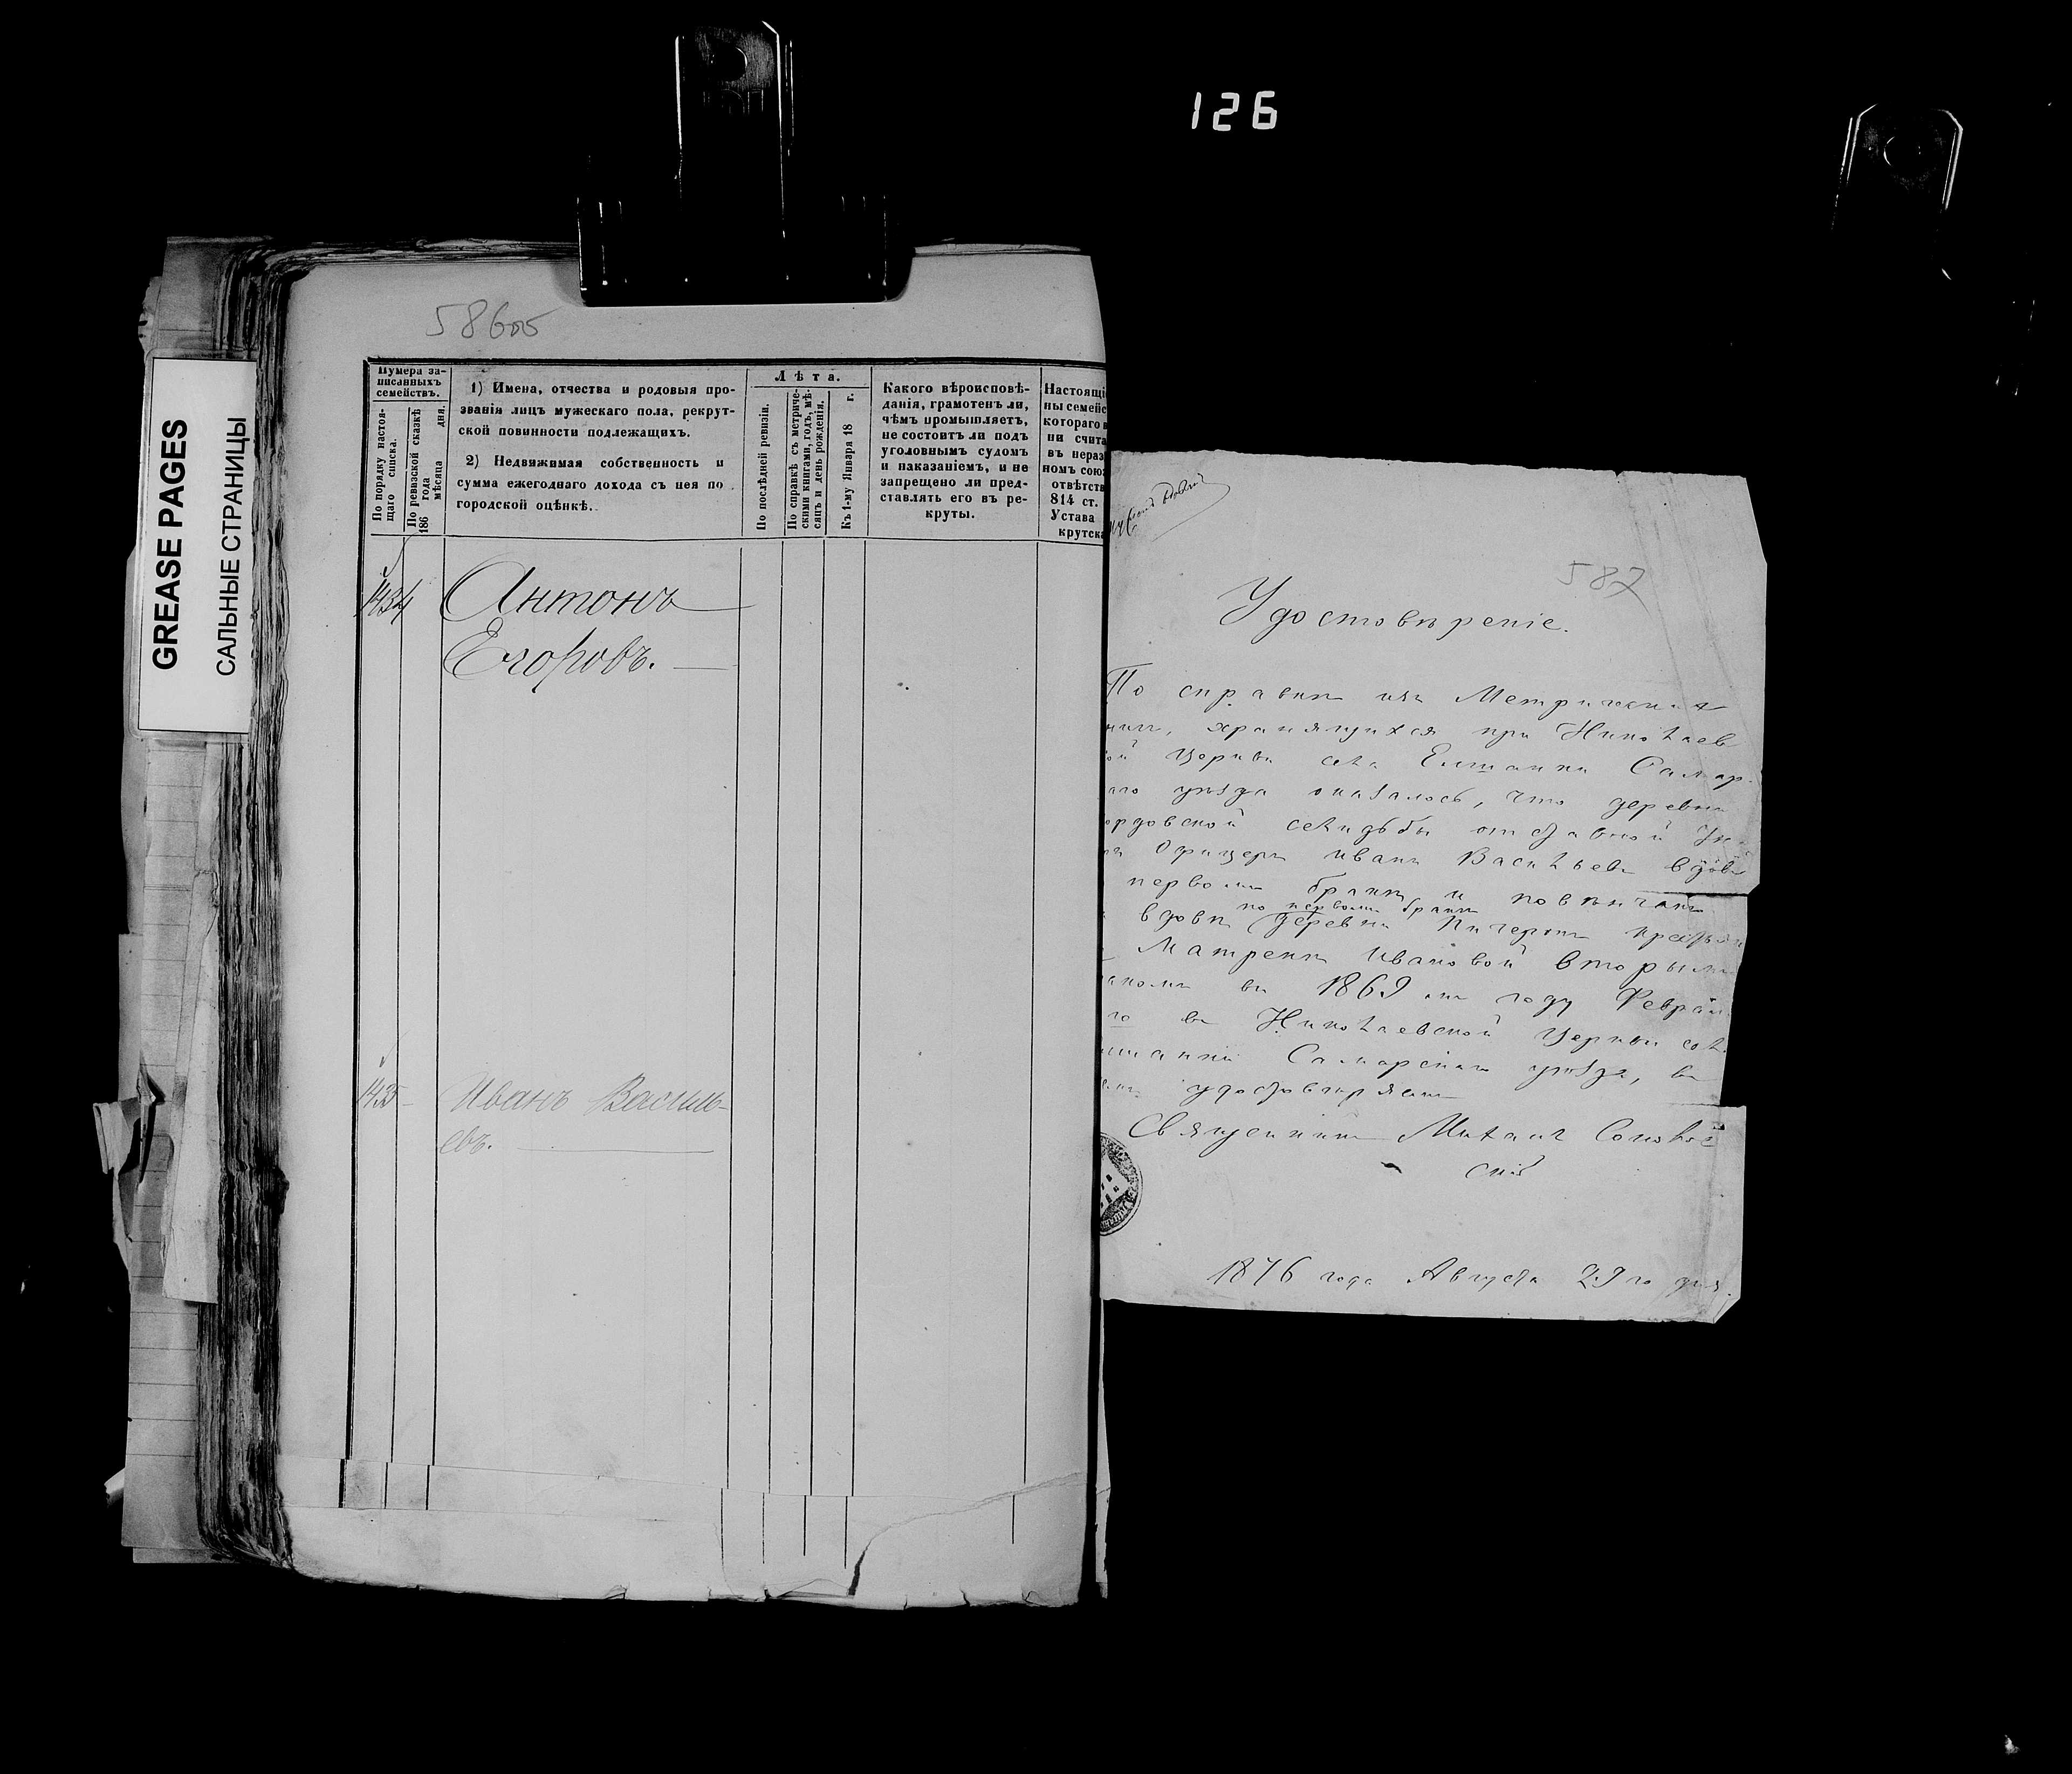 126
GREASE PAGES
САЛЬНЫЕ СТРАНИЦЫ
586об
Нумера за-
писанныхъ
семействъ.
По порядку настоя-
щаго списка.
По ревизской сказкѣ
186 года
мѣсяца дня.
1) Имена, отчества и родовыя про-
званія лицъ мужескаго пола, рекрут-
ской повинности подлежащихъ.
2) Недвижимая собственность и
сумма ежегоднаго дохода съ нея по
городской оцѣнкѣ.
Лѣта.
По послѣдней ревизіи.
По справкѣ съ метриче-
скими книгами, годъ, мѣ-
сяцъ и день рожденія.
Къ 1-му Января 18 г.
Какого вѣроисповѣ-
данія, грамотенъ ли,
чѣмъ промышляетъ,
не состоитъ ли подъ
уголовнымъ судомъ
и наказаніемъ, и не
запрещено ли пред-
ставлять его въ ре-
круты.
Настоящі
ны семейс
котораго
ни счита
въ нераз
номъ сою
отвѣтств
814 ст.
Устава
крутска
1434 Антонъ
Егоровъ.
1435 Иванъ Василь-
евъ.
587
Удостовѣреніе.
По справкѣ изъ Метрическихъ
книгъ, хранящихся при Николаев
ой Церкви села Елшанки Самар-
аго уѣзда оказалось, что деревни
ордовской селидьбы отставной Ун-
ъ Офицеръ Иванъ Васильевъ вдовъ
первомъ бракѣ и повѣнчанъ
по первомъ бракѣ
вдовѣ деревни крестьян
Матренѣ Ивановой вторымъ
акомъ въ 1869 мъ году Феврал
го въ Николаевской Церкви сел
шанки Самарскаго уѣзда, въ
емъ удостовѣряетъ
Священникъ Михаилъ Соловьев
скій
1876 года Августа 29 го дня.